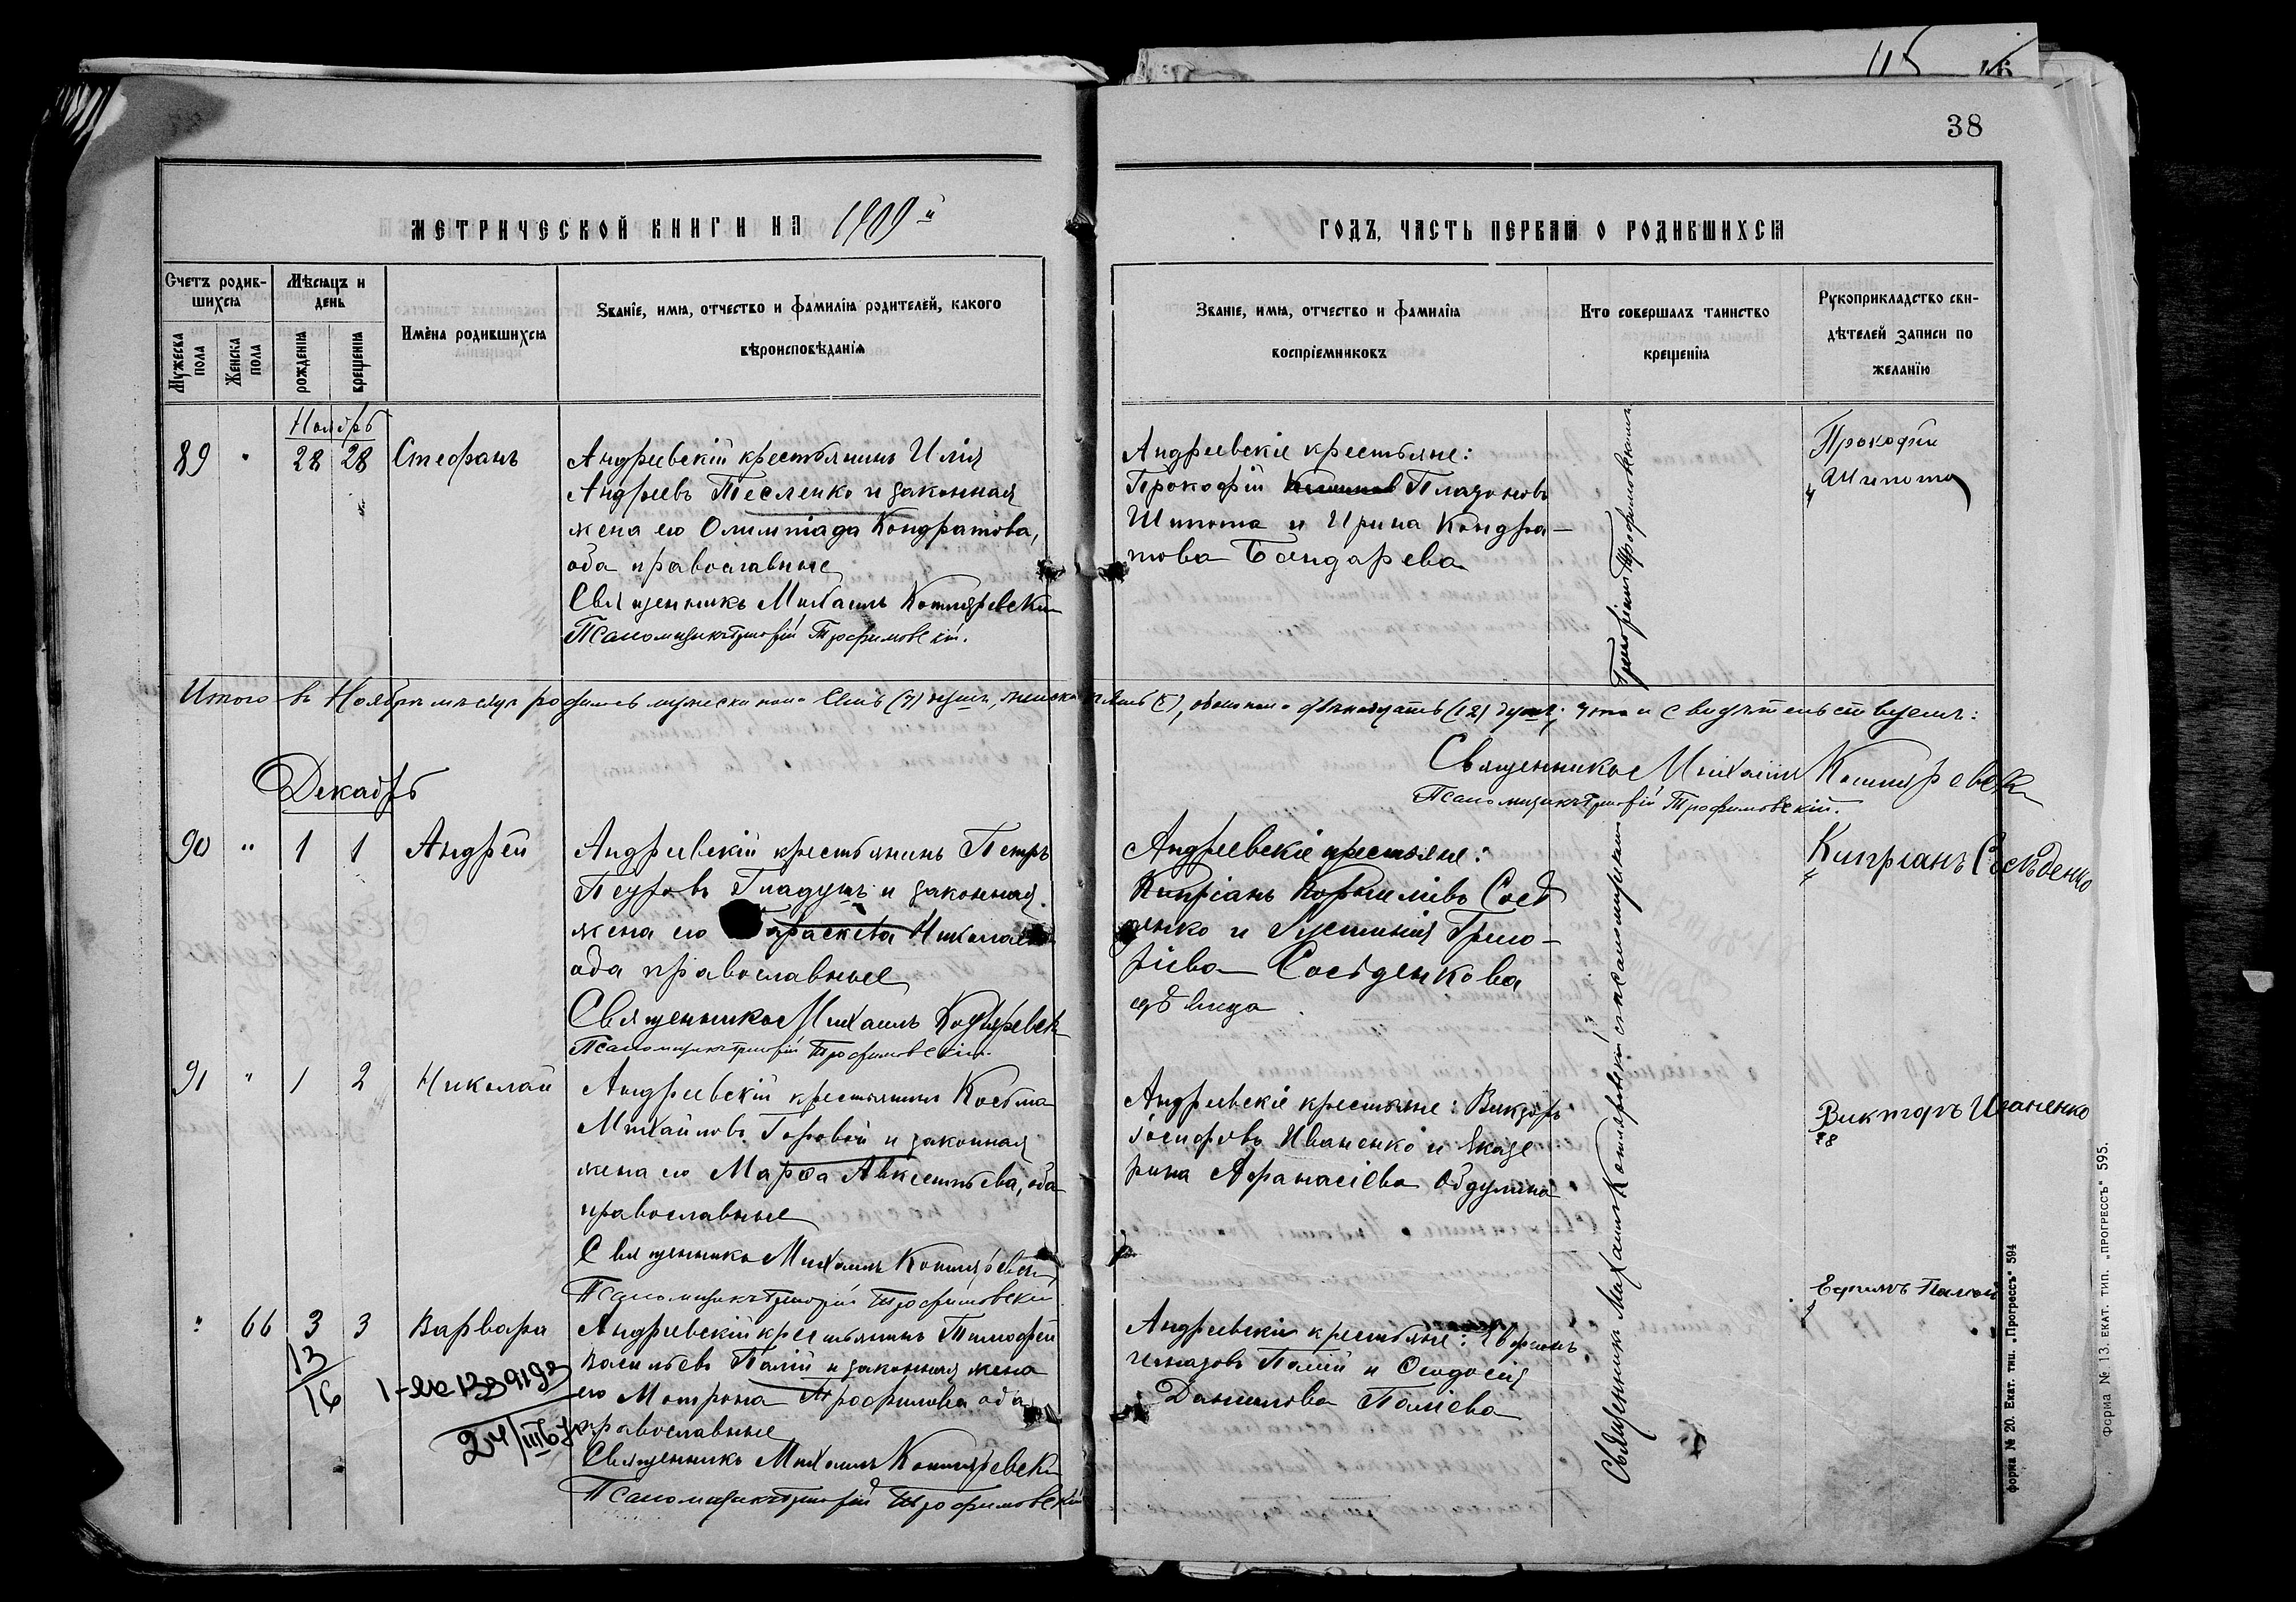 115 46
38
МЕТРИЧЕСКОЙ КНИГИ НА 1909й
ГОДЪ, ЧАСТЬ ПЕРВАЯ О РОДИВШИХСЯ
Счетъ родив-
шихся
Мужеска пола
Женска пола
Мѣсяцъ и
день
рожденія
крещенія
Имена родившихся
Званіе, имя, отчество и фамилія родителей, какого
вѣроисповѣданія
Званіе, имя, отчество и фамилія
воспріемниковъ
Кто совершалъ таинство
крещенія
Рукоприкладство сви-
дѣтелей записи по
желанію
Ноябрь
89 " 28 28 Стефанъ
Андреевскій крестьянинъ Илія
Андреевъ Тесленко и законная
жена его Олимпіада Кондратова,
оба православные
Священникъ Михаилъ Котляревскій
Псаломщикъ Григорій Трофимовскій.
Андреевскіе крестьяне:
Прокофій Платоновъ
Шипота и Ирина Кондра-
това Бандарева
Григоріемъ Трофимовскимъ
Прокофій
Шипота
Итого въ Ноябрѣ мѣсяцѣ родилось мужеска пола семь (7) душъ, женска пять (5), обоего пола двѣнадцать (12) душъ; что и свидѣтельствуемъ:
Священникъ Михаилъ Котляревскій
Псаломщикъ Григорій Трофимовскій.
Декабрь
90 " 1 1 Андрей
Андреевскій крестьянинъ Петръ
Петровъ Гладушъ и законная
жена его Параскева Николаева
оба православные
Священникъ Михаилъ Котляревскій
Псаломщикъ Григорій Трофимовскій.
Андреевскіе крестьяне:
Кипріанъ Корниліевъ Сосѣ
денко и Іустинія Григо-
ріева Сосѣденкова
дѣвица
Кипріанъ Сосѣденко
91 " 1 2 Николай
Андреевскій крестьянинъ Косьма
Михайловъ Горовой и законная
жена его Марѳа Авксентьева, оба
православные
Священникъ Михаилъ Котляревскій
Псаломщикъ Григорій Трофимовскій
Андреевскіе крестьяне: Викторъ
Іосифовъ Иваненко и Екате
рина Афанасіева Обдулина
Викторъ Иваненко
Священникъ Михаилъ Котляревскій съ псаломщикомъ
" 66 3 3 Варвара
13
16
24/III
Андреевскій крестьянинъ Тимофей
Васильевъ Палій и законная жена
его Матрона Трофимова оба
православные
Священникъ Михаилъ Котляревскій
Псаломщикъ Григорій Трофимовскій
Андреевскіе крестьяне: Ефремъ
Игнатовъ Палій и Ѳеодосія
Данилова Паліева
Форма № 20. Екат. тип. „Прогрессъ" 594
Форма № 13. ЕКАТ. ТИП. „ПРОГРЕССЪ" 595.